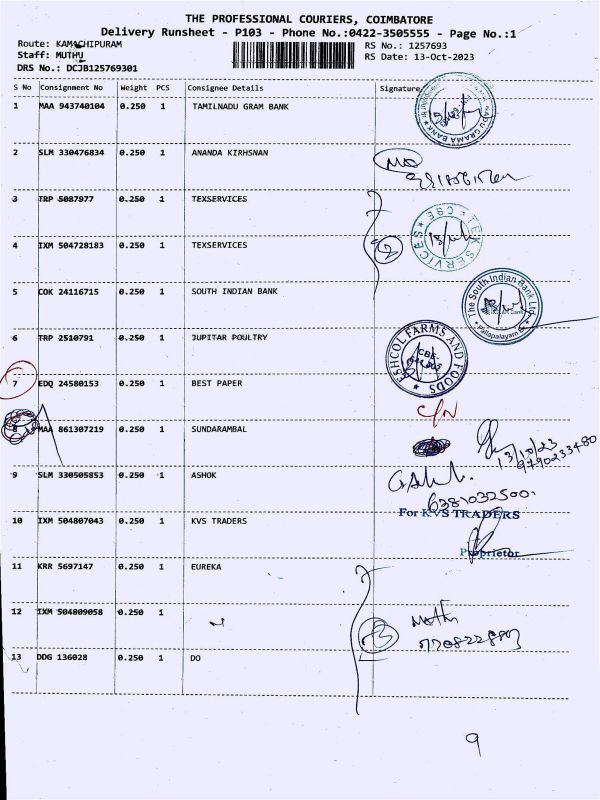 THE PROFESSIONAL COURIERS, COIMBATORE
Delivery Runsheet - P103 - Phone No.:0422-3505555 - Page No.:1
Route: KAMACHIPURAM
RS No.: 1257693
Staff: MUTHU
RS Date: 13-Oct-2023
DRS No.: DCJB125769301
S No Consignment No Weight PCS Consignee Details Signature
1 MAA 943740104 0.250 1 TAMILNADU GRAM BANK
2 SLM 330476834 0.250 1 ANANDA KIRHSNAN
3 TRP 5087977 0.250 1 TEXSERVICES
TEK SERVICES ★ CBE ★
4 IXM 504728183 0.250 1 TEXSERVICES
2
5 COK 24116715 0.250 1 SOUTH INDIAN BANK
The South Indian Bank Ltd.
6 TRP 2510791 0.250 1 JUPITAR POULTRY
ESHCOL FARMS AND FOODS
CBE-
7 EDQ 24580153 0.250 1 BEST PAPER
C/N
8 MAA 861307219 0.250 1 SUNDARAMBAL
13/10/23
9790233480
9 SLM 330505853 0.250 1 ASHOK
6381032500
10 IXM 504807043 0.250 1 KVS TRADERS
For KVS TRADERS
Proprietor
11 KRR 5697147 0.250 1 EUREKA
12 IXM 504809058 0.250 1
3
13 DDG 136028 0.250 1 DO
9